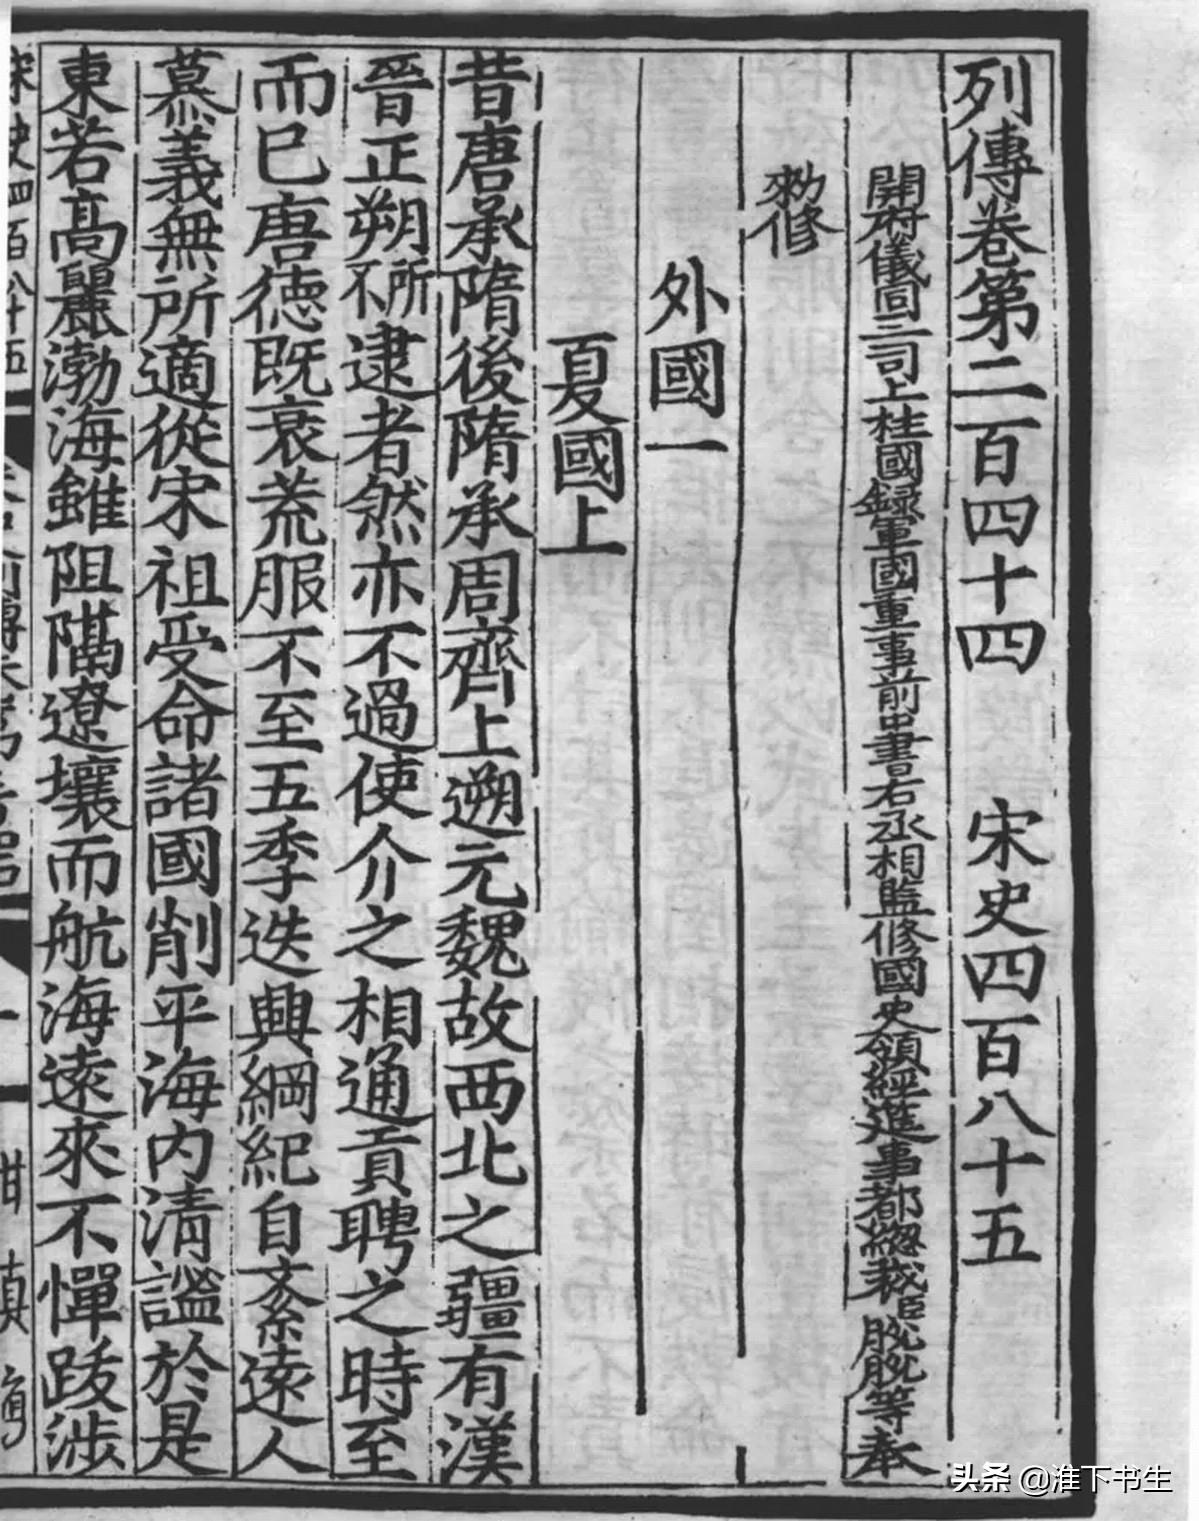 列傳卷第二百四十四　宋史四百八十五
開府儀同三司上柱國録軍國重事前中書右丞相監修國史領經進事都緫裁臣脫脫等奉
勑修
外國一
夏國上
昔唐承隋後隋承周齊上遡元魏故西北之疆有漢
晉正朔所不逮者然亦不過使介之相通貢聘之時至
而已唐德既衰荒服不至五季迭興綱紀自紊遠人
慕義無所適從宋祖受命諸國削平海内清謐於是
東若高麗渤海雖阻隔遼壤而航海遠來不憚跋涉
宋史四百八十五
头条 @淮下书生